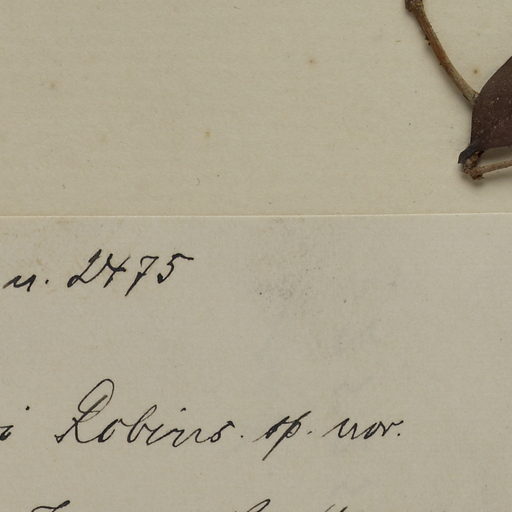 n. 2475
i Robins. sp. nov.